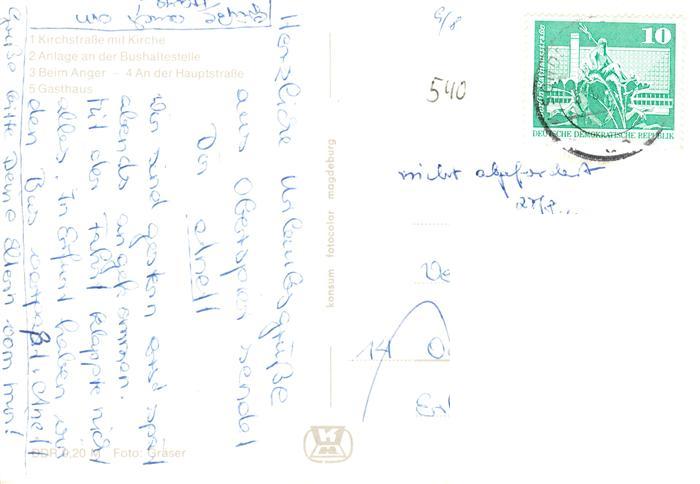 1 Kirchstraße mit Kirche
2 Anlage an der Bushaltestelle
3 Beim Anger - 4 An der Hauptstraße
5 Gasthaus
Herzliche Urlaubsgrüße
aus Obertspier sendet
Dir Anett
Wir sind gestern erst spät
abends angekommen.
Mit der Fahrt klappte nicht
alles. In Erfurt haben wir
den Bus verpaßt. Anett
Grüße bitte Deine Eltern von mir!
Grüße auch an
DDR 0,20 M Foto: Gräser
konsum fotocolor magdeburg
9/8
540
10
Berlin, Rathausstraße
DEUTSCHE DEMOKRATISCHE REPUBLIK
nicht abgefordert
14